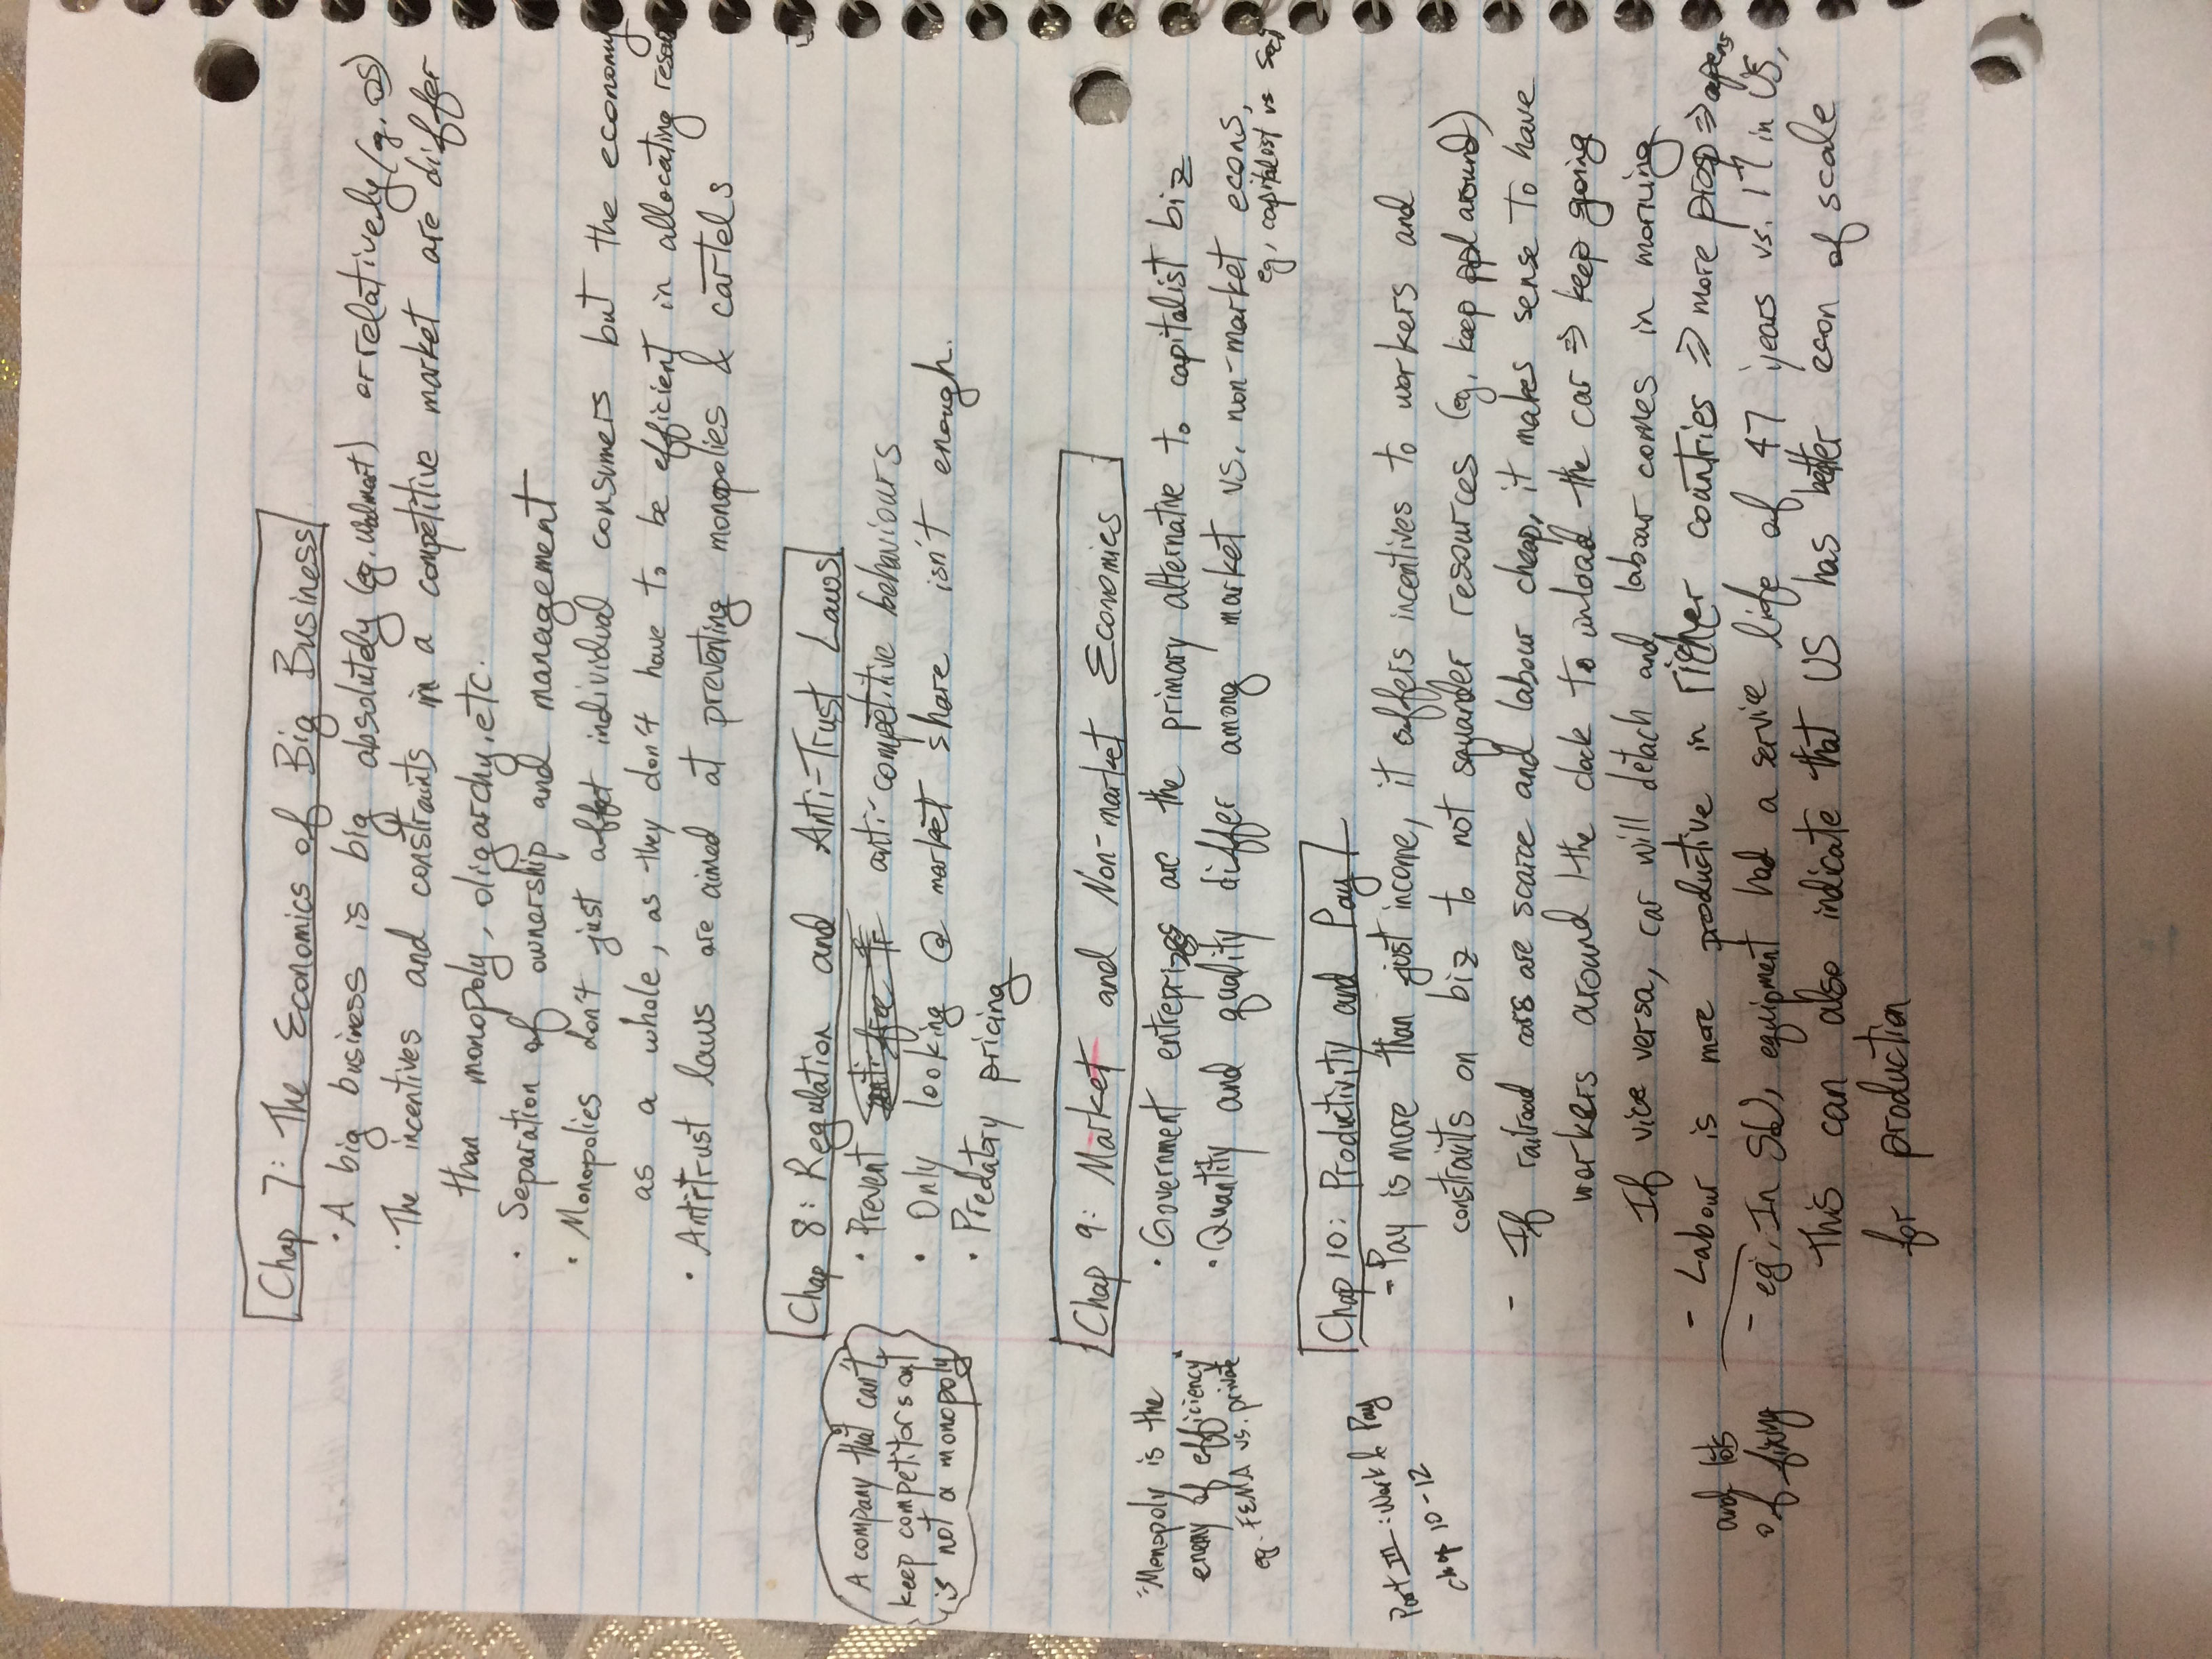 Chap 7: The Economics of Big Business
· A big business is big absolutely (eg, Walmart) or relatively (g, OS)
· The incentives and constraints in a competitive market are differ
than monopoly, oligarchy, etc.
· Separation of ownership and management
· Monopolies don't just affect individual consumers but the economy
as a whole, as they don't have to be efficient in allocating
· Antitrust laws are aimed at preventing monopolies & cartels
Chap 8: Regulation and Anti-Trust Laws
· Prevent anti-competitive behaviours
· Only looking @ market share isn't enough.
· Predatory pricing
A company that can't
keep competitors out
is not a monopoly
Chap 9: Market and Non-market Economics
· Government entreprizes are the primary alternative to capitalist biz
· Quantity and quality differ among market vs. non-market econs,
eg, capitalist vs
"Monopoly is the
enemy of efficiency"
eg. FEMA vs. private
Part III: Work & Pay
chap 10-12
Chap 10: Productivity and Pay
- Pay is more than just income, it offers incentives to workers and
constraints on biz to not squander resources (eg, keep ppl around)
- If railroad cars are scarce and labour cheap, it makes sense to have
workers around the clock to unload the car ⇒ keep going
If vice versa, car will detach and labour comes in morning
- Labour is more productive in richer countries ⇒ more prod ⇒
- eg, In SU, equipment had a servie life of 47 years vs. 17 in US,
and lots
of fixing
This can also indicate that US has better econ of scale
for production